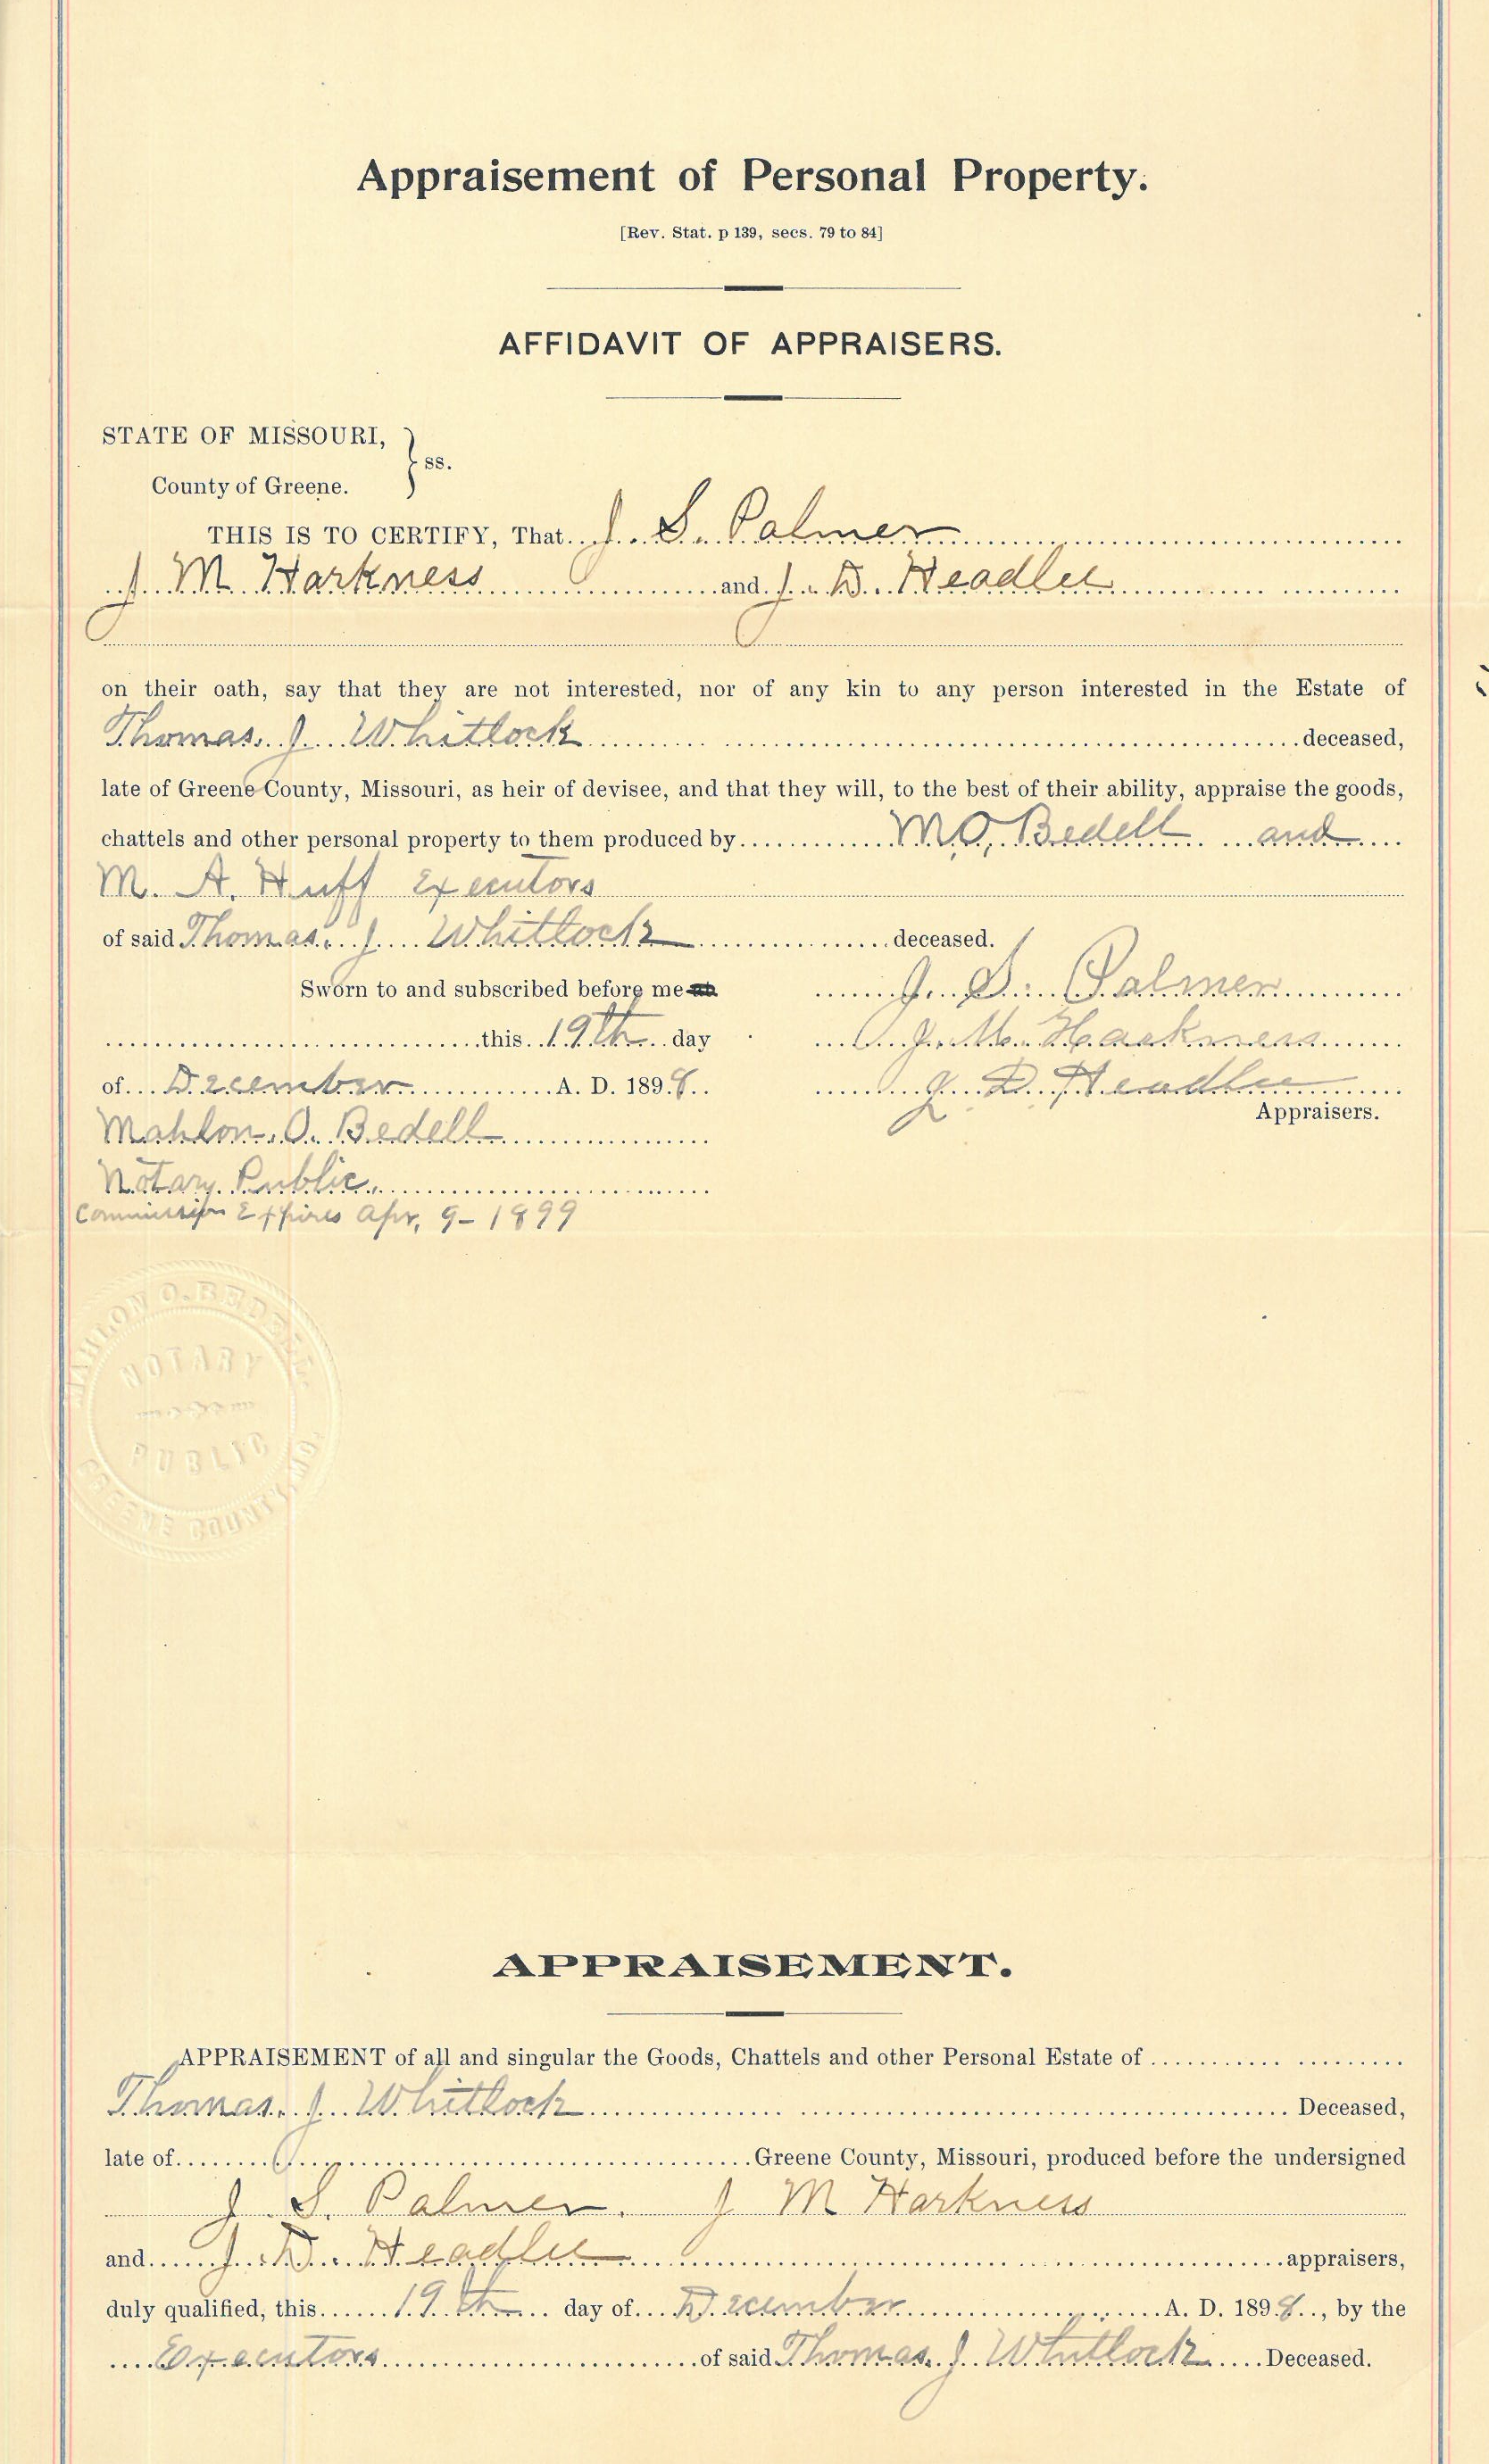 Appraisement of Personal Property.
[Rev. Stat. p 139, secs. 79 to 84]
AFFIDAVIT OF APPRAISERS.
STATE OF MISSOURI,
ss.
County of Greene.
THIS IS TO CERTIFY, That J. S. Palmer
J. M. Harkness and J. D. Headlee
on their oath, say that they are not interested, nor of any kin to any person interested in the Estate of
Thomas. J. Whitlock deceased,
late of Greene County, Missouri, as heir of devisee, and that they will, to the best of their ability, appraise the goods,
chattels and other personal property to them produced by M.O. Bedell and
M. A. Huff Executors
of said Thomas. J. Whitlock deceased.
Sworn to and subscribed before me J. S. Palmer
this 19th day J. M. Harkness
of December A. D. 1898. J. D. Headlee
Appraisers.
Mahlon. O. Bedell
Notary Public.
Commission Expires Apr. 9- 1899
MAHLON O. BEDELL.
NOTARY
PUBLIC
GREENE COUNTY, MO.
APPRAISEMENT.
APPRAISEMENT of all and singular the Goods, Chattels and other Personal Estate of
Thomas. J. Whitlock Deceased,
late of Greene County, Missouri, produced before the undersigned
J. S. Palmer. J M Harkness
and J. D. Headlee appraisers,
duly qualified, this 19th day of December A. D. 1898, by the
Executors of said Thomas. J Whitlock Deceased.